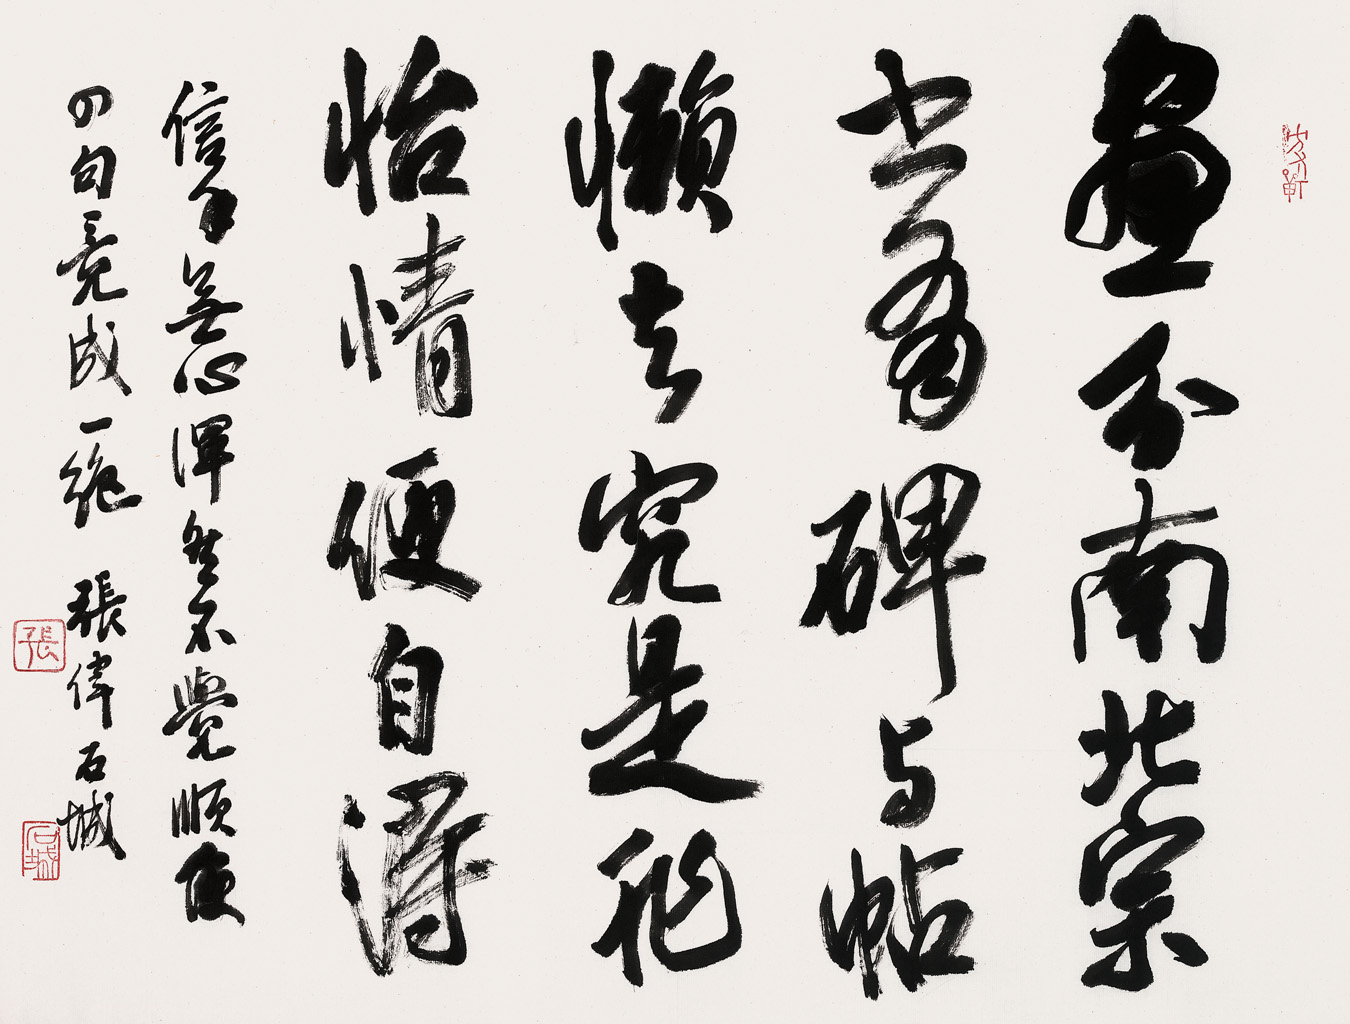 畫分南北宗
书有碑与帖
懶去究是非
怡情便自得
信手無心渾然不覺順便
四句竟成一绝 張偉石城
張
石城